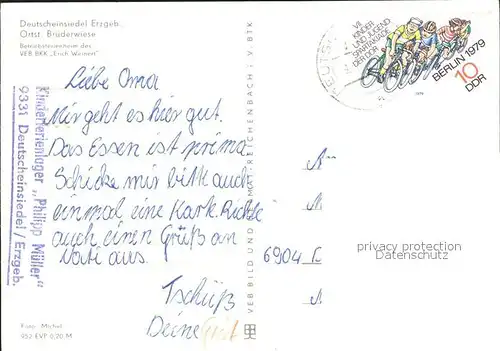 Deutscheinsiedel Erzgeb.
Ortst. Brüderwiese
Betriebsferienheim des
VEB BKK „Erich Weinert"
Kinderferienlager „Philipp Müller"
9331 Deutscheinsiedel / Erzgeb.
Liebe Oma
Mir geht es hier gut.
Das Essen ist prima
Schicke mir bitte auch
einmal eine Karte. Richte
auch einen Gruß an
Vati aus.
Tschüß
Deine
Foto: Michel
952 EVP 0,20 M
VEB BILD UND HEIMAT REICHENBACH i. V. BKB
VII.
KINDER
UND JUGEND
SPARTAKIADE
DER DDR
BERLIN 1979
10
DDR
1979
6904
privacy protection
Datenschutz